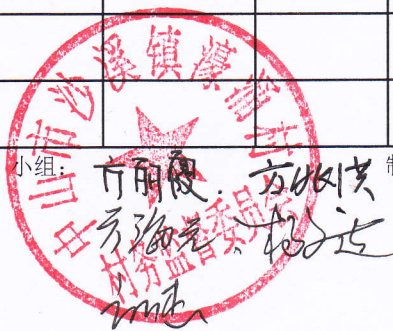 中山市沙溪镇濠涌村
村务监督委员会
小组：方丽霞、方兆洪 制
方海亮、杨